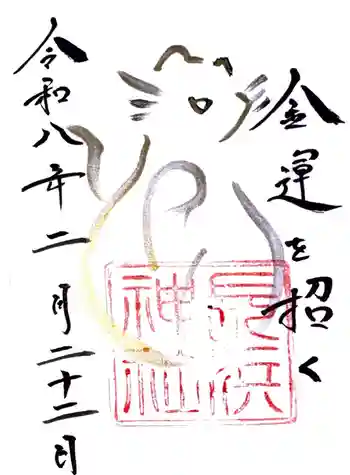 金運を招く
長浜神社
令和八年二月二十二日